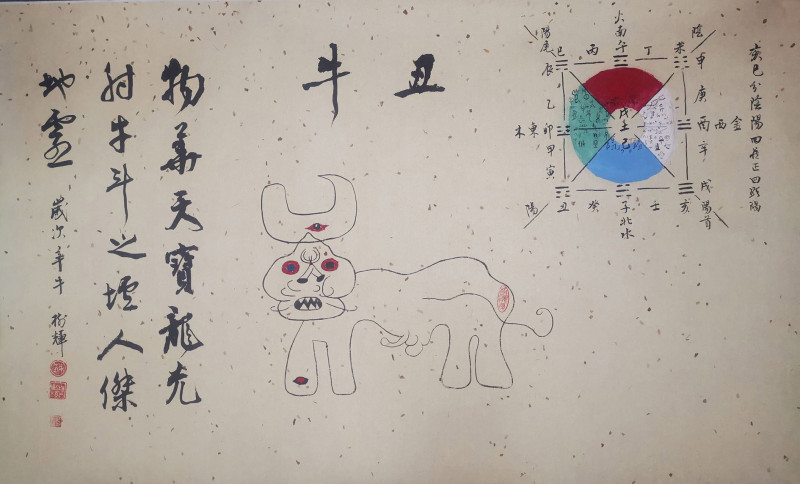 亥巳分陰陽四正四
陰
火南午
陽
巳 丙 丁 未
辰 申
乙 庚
木東卯 酉西金
甲 辛
寅 戌
陽 丑 癸 子北水 壬 亥
陽首
戊土己
丑牛
物華天寶龍光
射牛斗之墟人傑
地靈
歲次辛牛 樹輝